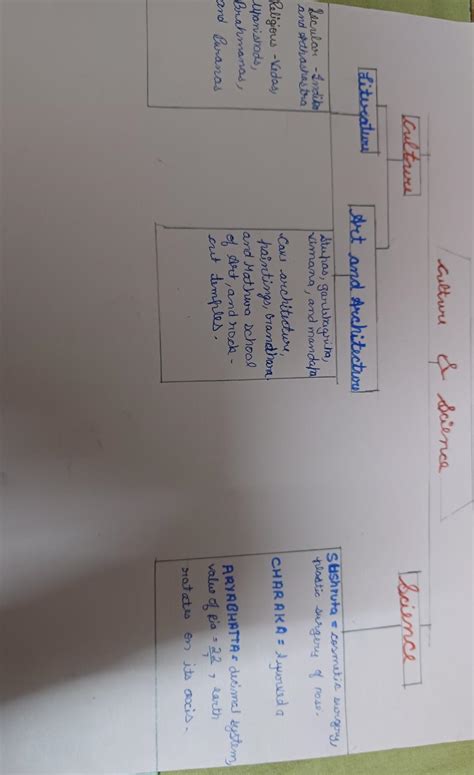 Culture & Science
Culture
Literature
Secular - Indika
and Arthashastra
Religious - Vedas,
Upanishads,
Brahmanas,
and Puranas
Art and Architecture
Stupas, garbhagriha,
vimana, and mandapa
Cave architecture,
paintings, Grandhara
and Mathura School
of Art, and rock-
cut temples.
Science
SUshruta = cosmetic surgery,
plastic surgery of nose.
CHARAKA =
ARYABHATTA = decimal system,
value of pie = 22/7, earth
rotates on its axis.